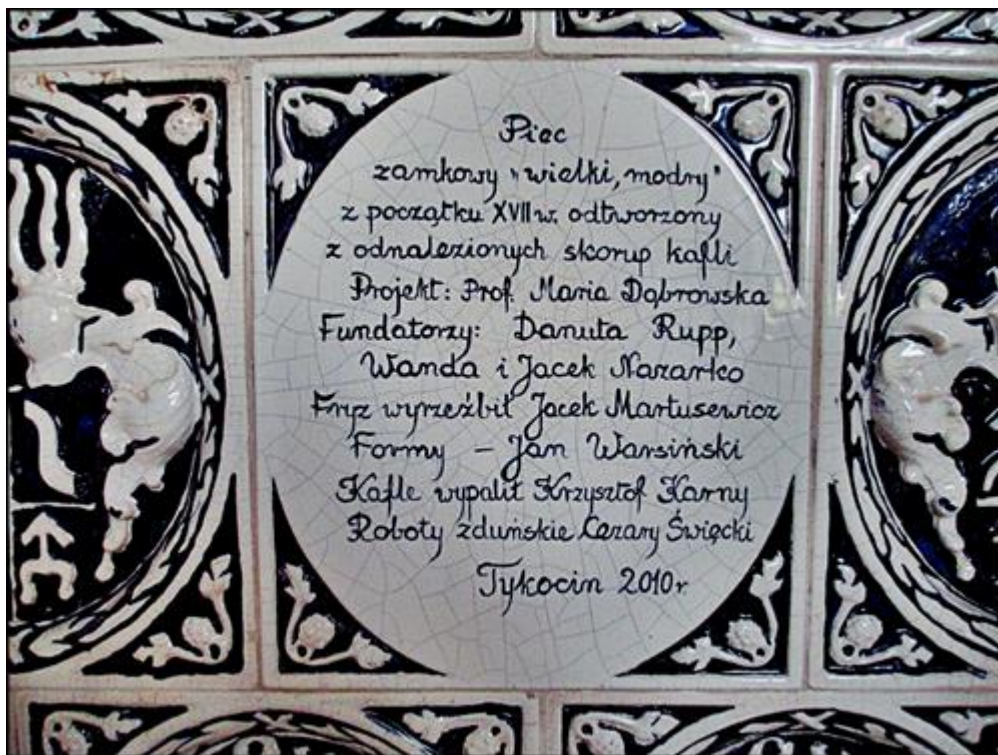 Piec
zamkowy "wielki, modry"
z początku XVII w. odtworzony
z odnalezionych skorup kafli
Projekt: Prof. Maria Dąbrowska
Fundatorzy: Danuta Rupp,
Wanda i Jacek Nazarko
Fryz wyrzeźbił Jacek Martusewicz
Formy – Jan Warsiński
Kafle wypalił Krzysztof Karny
Roboty zduńskie Cezary Święcki
Tykocin 2010 r.